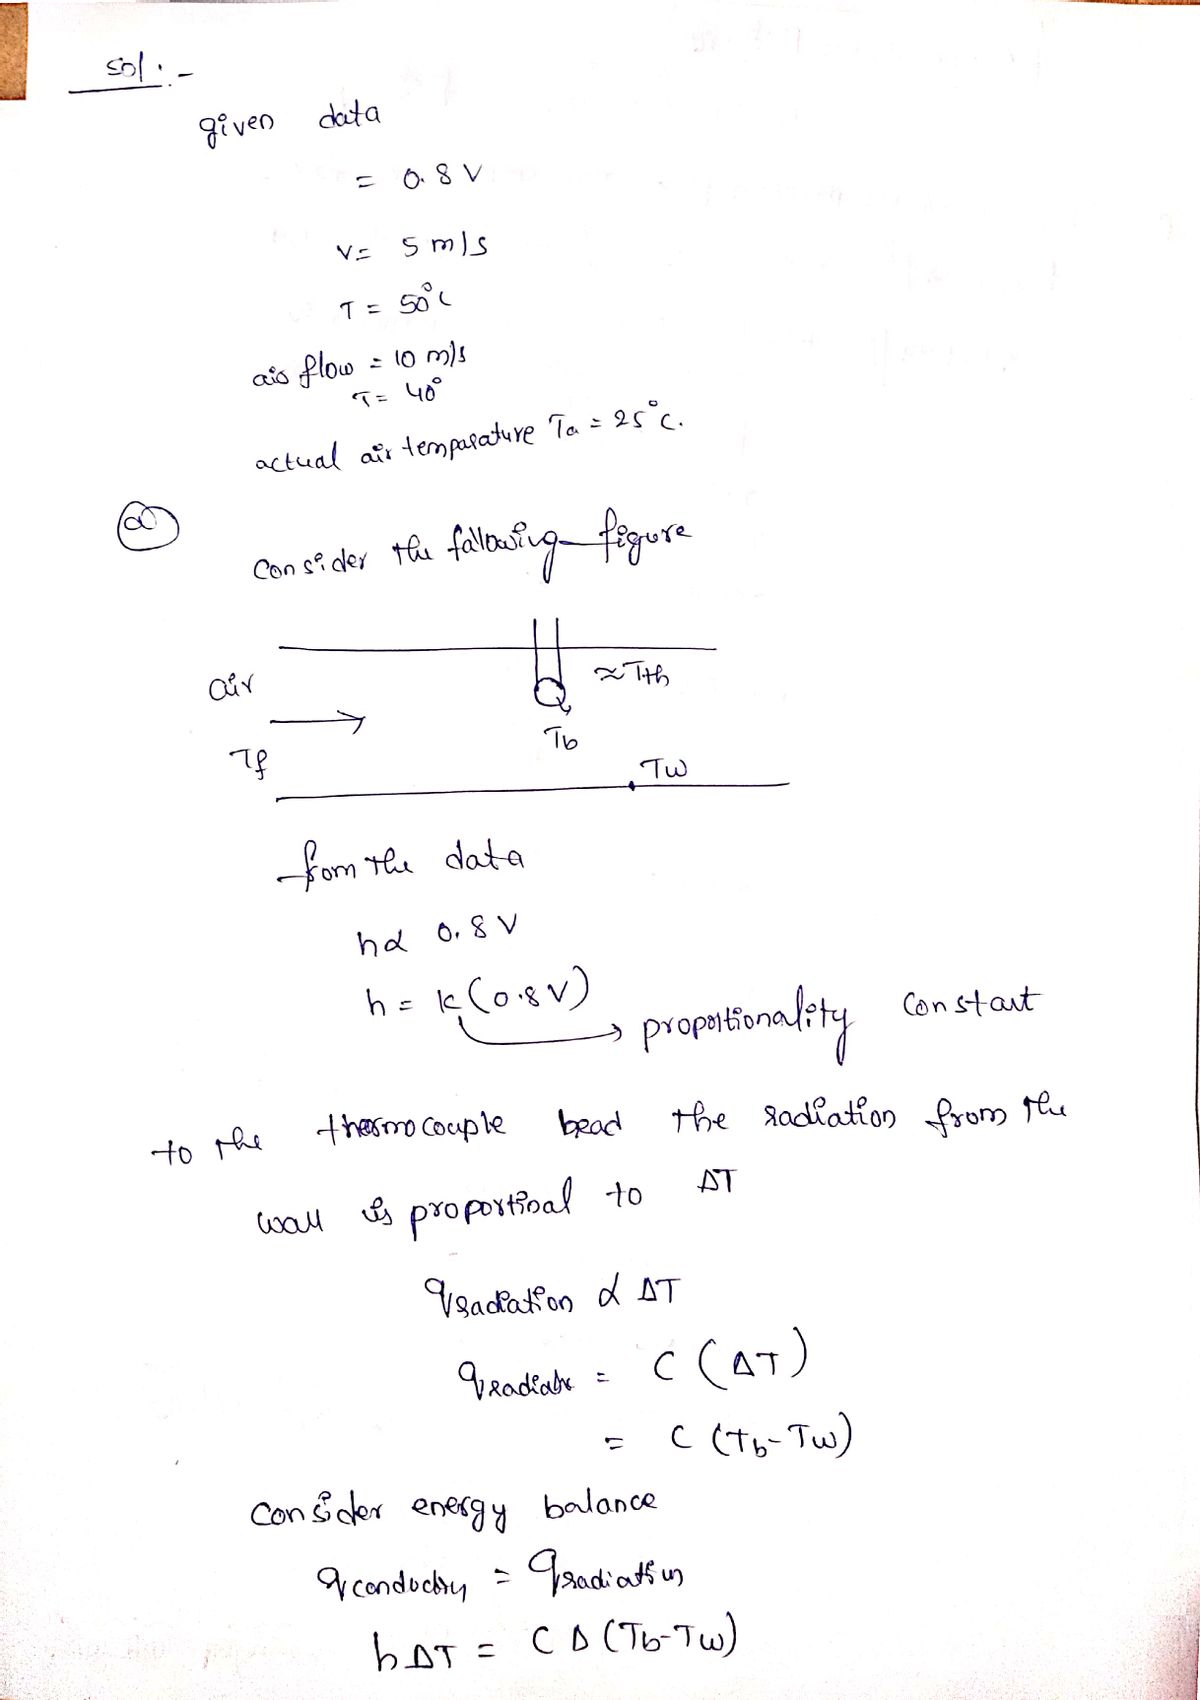 Sol:-
given data
= 0.8 V
V = 5 m/s
T = 50°C
air flow = 10 m/s
T = 40°
actual air temparature Ta = 25°C.
(a)
Consider the fallowing figure
air
≈ Tth
Tb
Tf
Tw
from the data
h α 0.8 V
h = k (0.8 V)
→ proportionality constant
to the thermocouple bead the radiation from the
wall is proportinal to ΔT
qradiation α ΔT
qradiatn = C (ΔT)
= C (Tb - Tw)
Consider energy balance
qconductn = qradiation
h ΔT = C Δ (Tb - Tw)